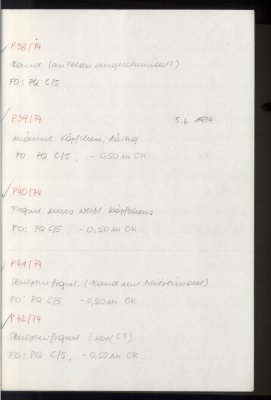 P38/74
Hand (
FO: PQ C/5
P39/74 5.6. 1974
männl. Köpfchen, bärtig
FO: PQ C/5, - 0,50 m OK
P40/74
Fragm. eines weibl. Köpfchens
FO: PQ C/5, - 0,50 m OK
P41/74
Skulpturfragm. (Hand mit
FO: PQ C/5 - 0,50 m OK
P42/74
Skulpturfragm. (
FO: PQ C/5, - 0,50 m OK